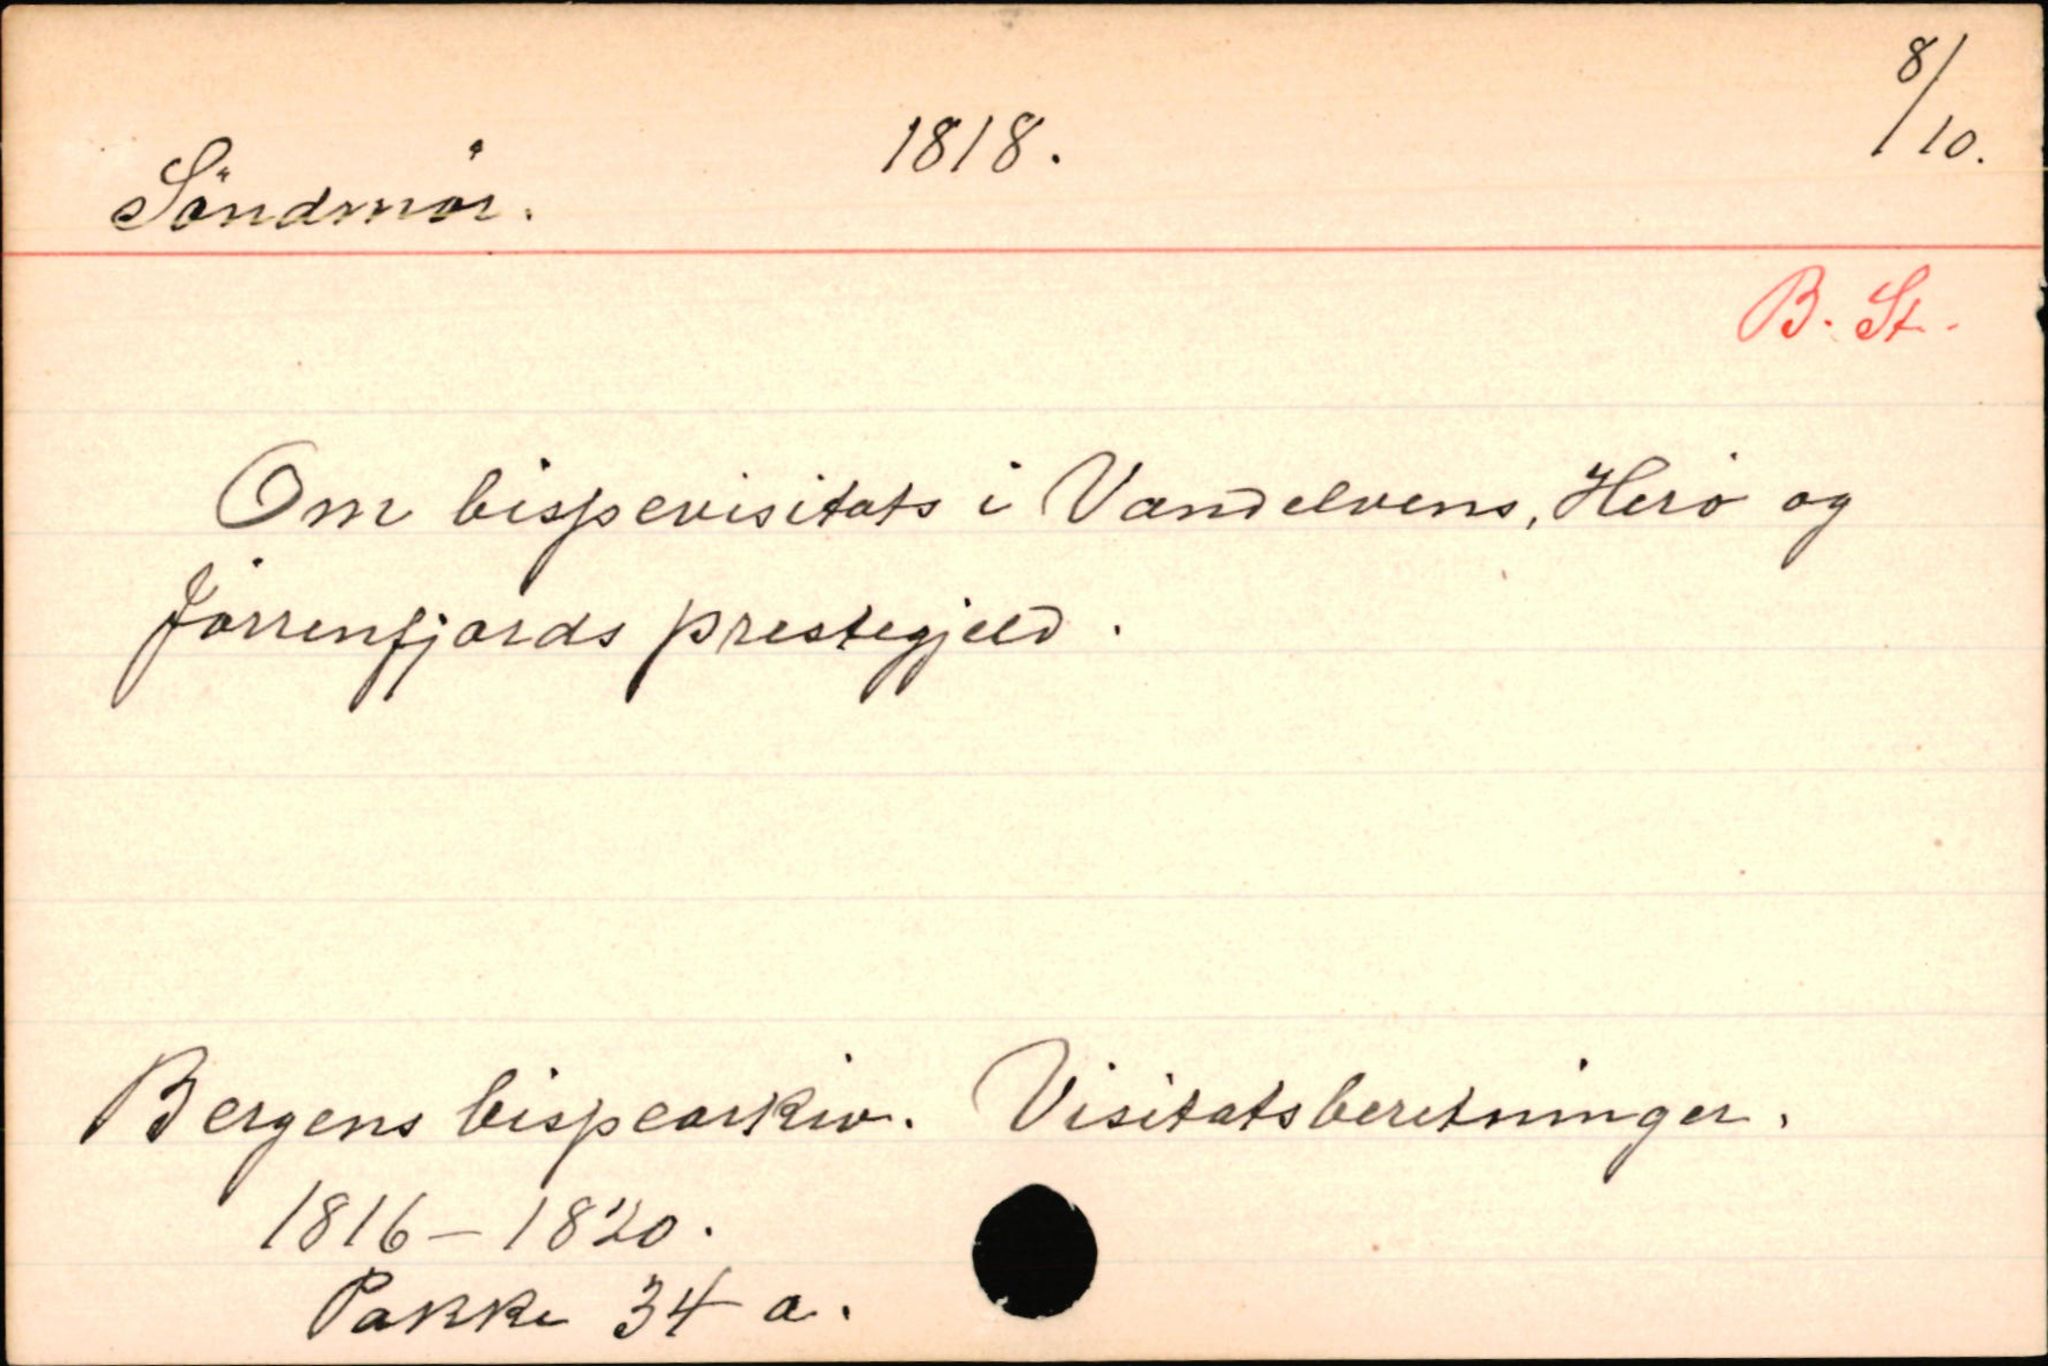 8/10.
1818.
Söndmör.
B. St.
Om bispevisitats i Vandelvens, Herö og
Jörrenfjords prestegjeld.
Bergens bispearkiv. Visitatsberetninger.
1816 – 1820.
Pakke 34 a.